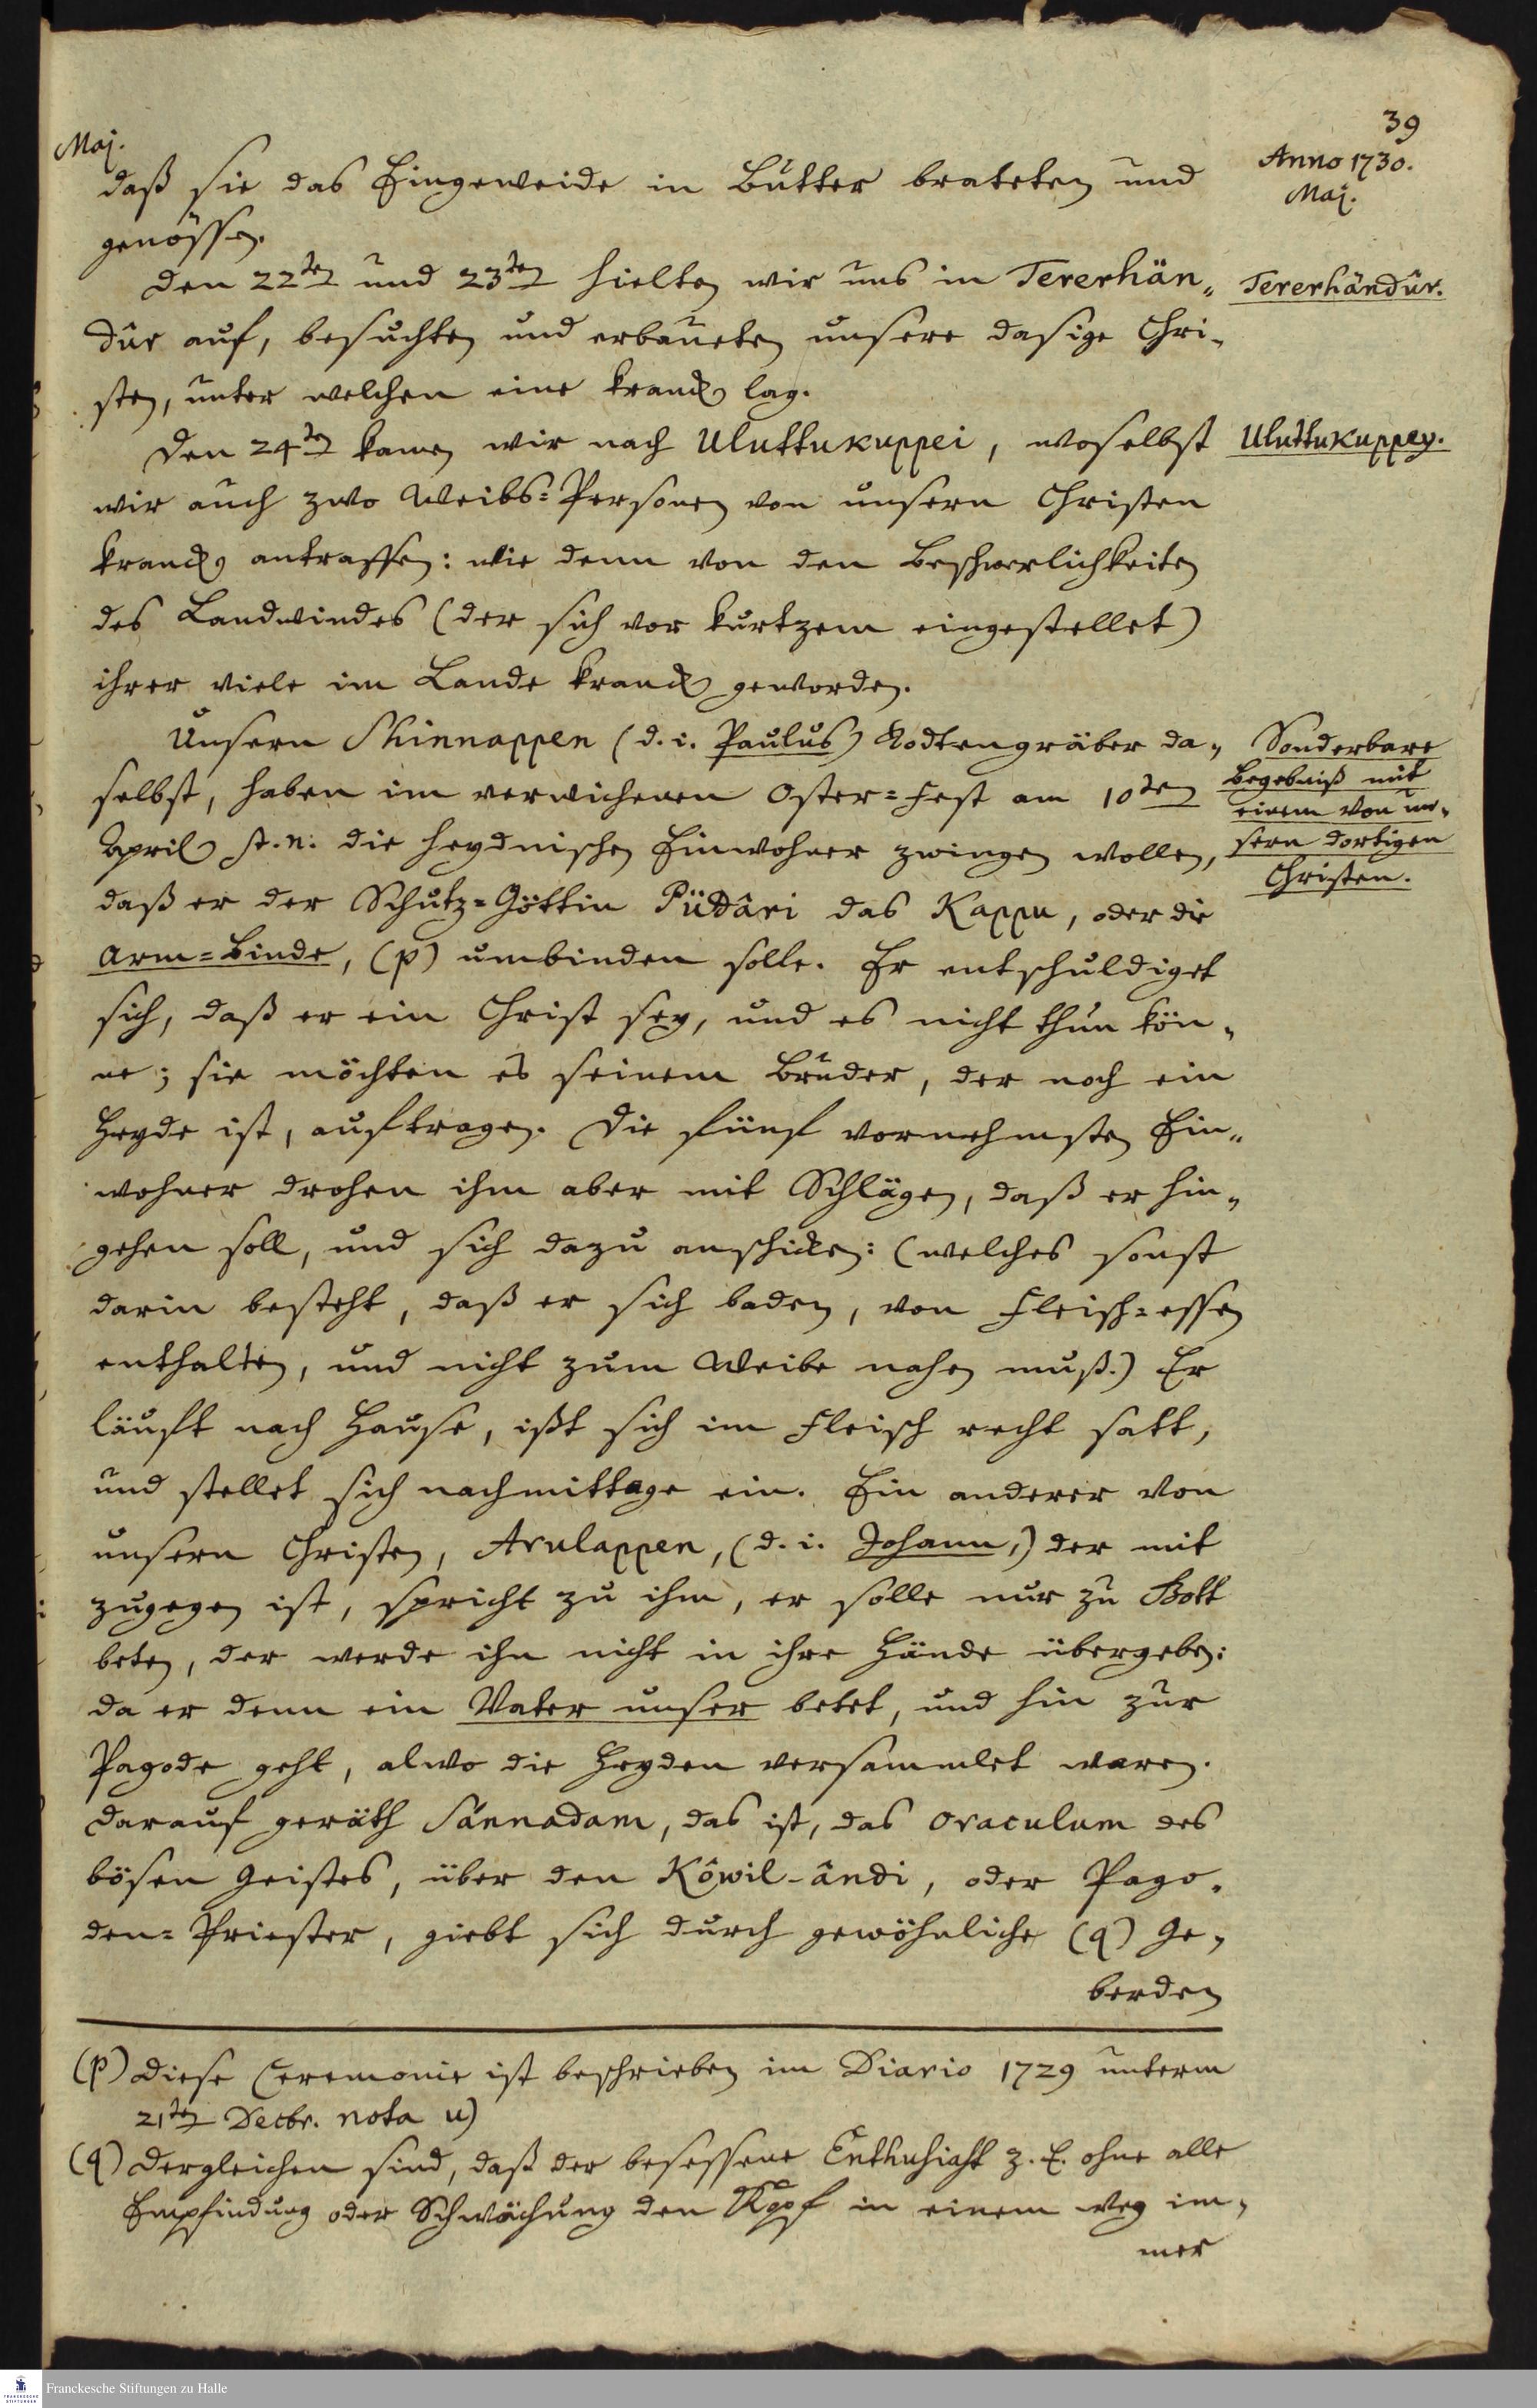 39
Maj.
Anno 1730.
Maj.
daß sie das Eingeweide in Butter brateten und
genössen.
Den 22ten und 23ten hielten wir uns in Tererhän-
Tererhândûr.
dûr auf, besuchten und erbaueten unsere dasige Chri-
sten, unter welchen eine kranck lag.
Den 24ten kamen wir nach Uluttukuppei, woselbst
Uluttukuppey.
wir auch zwo Weibs-Personen von unsern Christen
kranck antraffen: wie denn von den Beschwerlichkeiten
des Landwindes (der sich vor kurtzem eingestellet)
ihrer viele im Lande kranck geworden.
Unsern Shinnappen (d. i. Paulus) Todtengräber da-
Sonderbare
Begebniß mit
einem von un-
sern dortigen
Christen.
selbst, haben im verwichenen Oster-Fest am 10ten
April st. n. die heydnischen Einwohner zwingen wollen,
daß er der Schutz-Göttin Püdâri das Kappu, oder die
Arm-Binde, (p) umbinden solle. Er entschuldiget
sich, daß er ein Christ sey, und es nicht thun kön-
ne; sie möchten es seinem Bruder, der noch ein
Heyde ist, auftragen. Die fünf vornehmsten Ein-
wohner drohen ihm aber mit Schlägen, daß er hin-
gehen soll, und sich dazu anschicken: (welches sonst
darin besteht, daß er sich baden, von Fleisch-essen
enthalten, und nicht zum Weibe nahen muß.) Er
läuft nach Hause, ißt sich im Fleisch recht satt,
und stellet sich nachmittage ein. Ein anderer von
unsern Christen, Arulappen, (d. i. Johann,) der mit
zugegen ist, spricht zu ihm, er solle nur zu Gott
beten, der werde ihn nicht in ihre Hände übergeben:
da er denn ein Vater unser betet, und hin zur
Pagode geht, alwo die Heyden versammlet waren.
Darauf geräth Sánnadam, das ist, das Oraculum des
bösen Geistes, über den Kôwil-ândi, oder Pago-
den-Priester, giebt sich durch gewöhnliche (q) Ge-
berden
(p) Diese Ceremonie ist beschrieben im Diario 1729 unterm
21ten Decbr. nota u)
(q) Dergleichen sind, daß der besessene Enthusiast z. E. ohne alle
Empfindung oder Schwächung den Kopf in einem weg im-
mer
Franckesche Stiftungen zu Halle